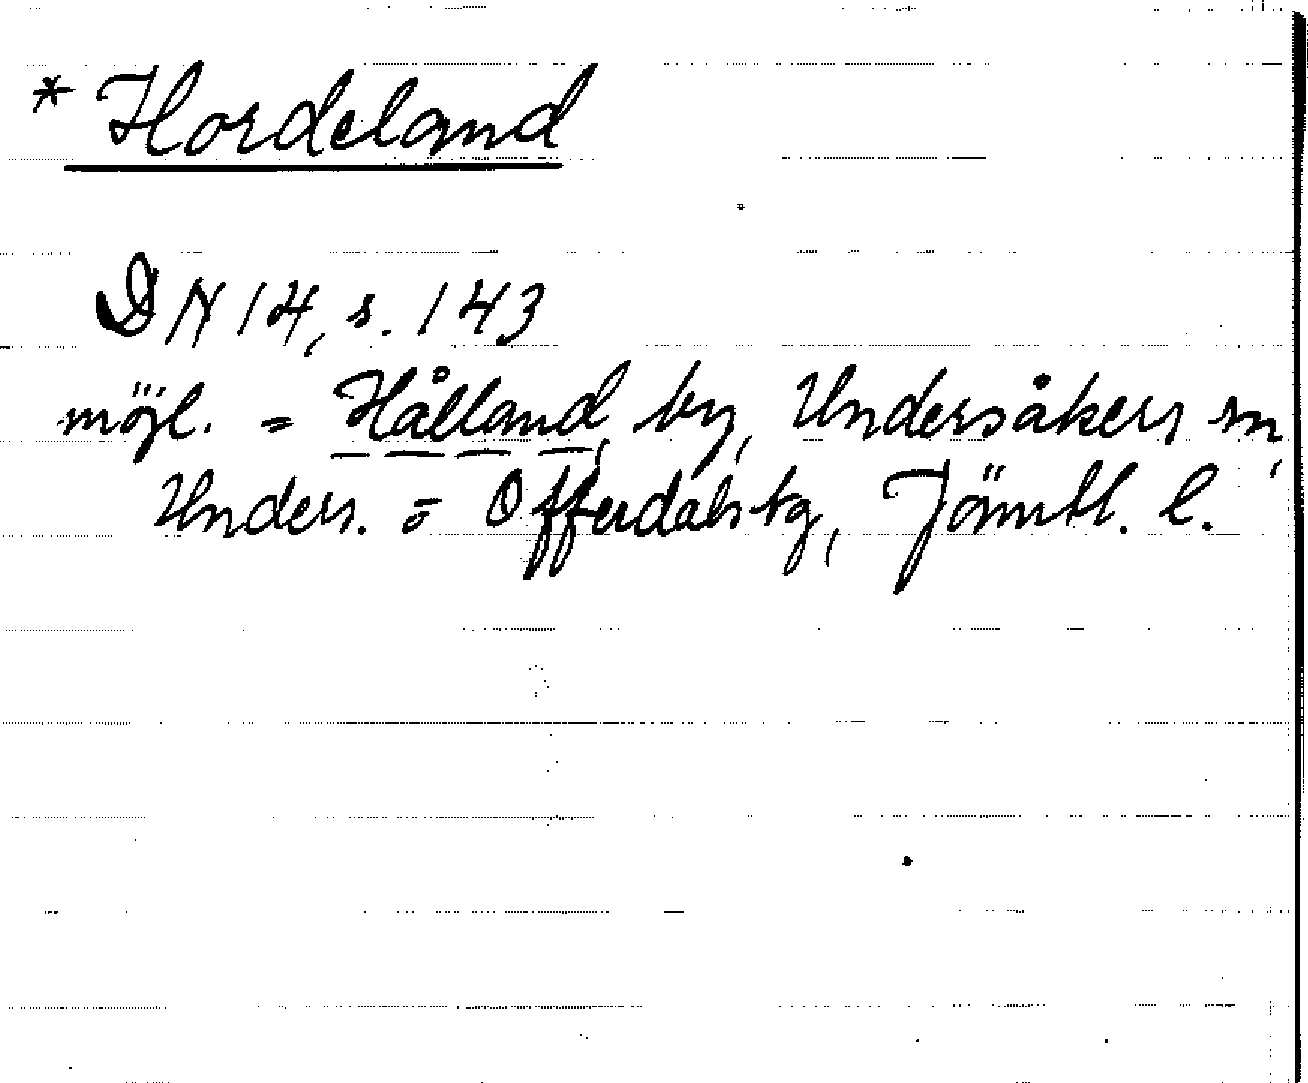 * Hordeland
DN 14, s. 143
möjl. = Hålland, by, Undersåkers sn,
Unders. o Offerdals tg, Jämtl. l.